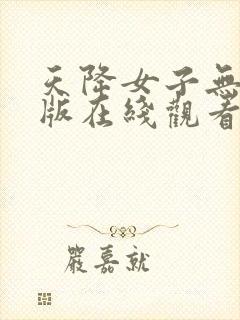 天降女子無
版在綫觀看
嚴嘉就